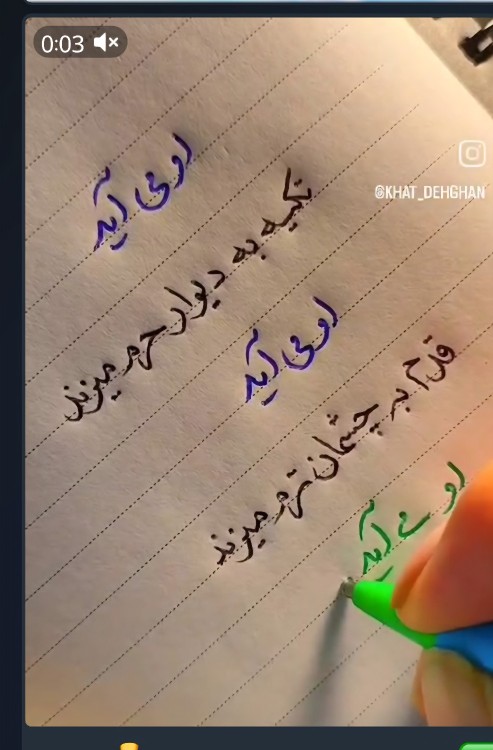 0:03
@KHAT_DEHGHAN
او می آید
تکیه به دیوار حرم میزند
او می آید
قدم به چشمان ترم میزند
او می آید